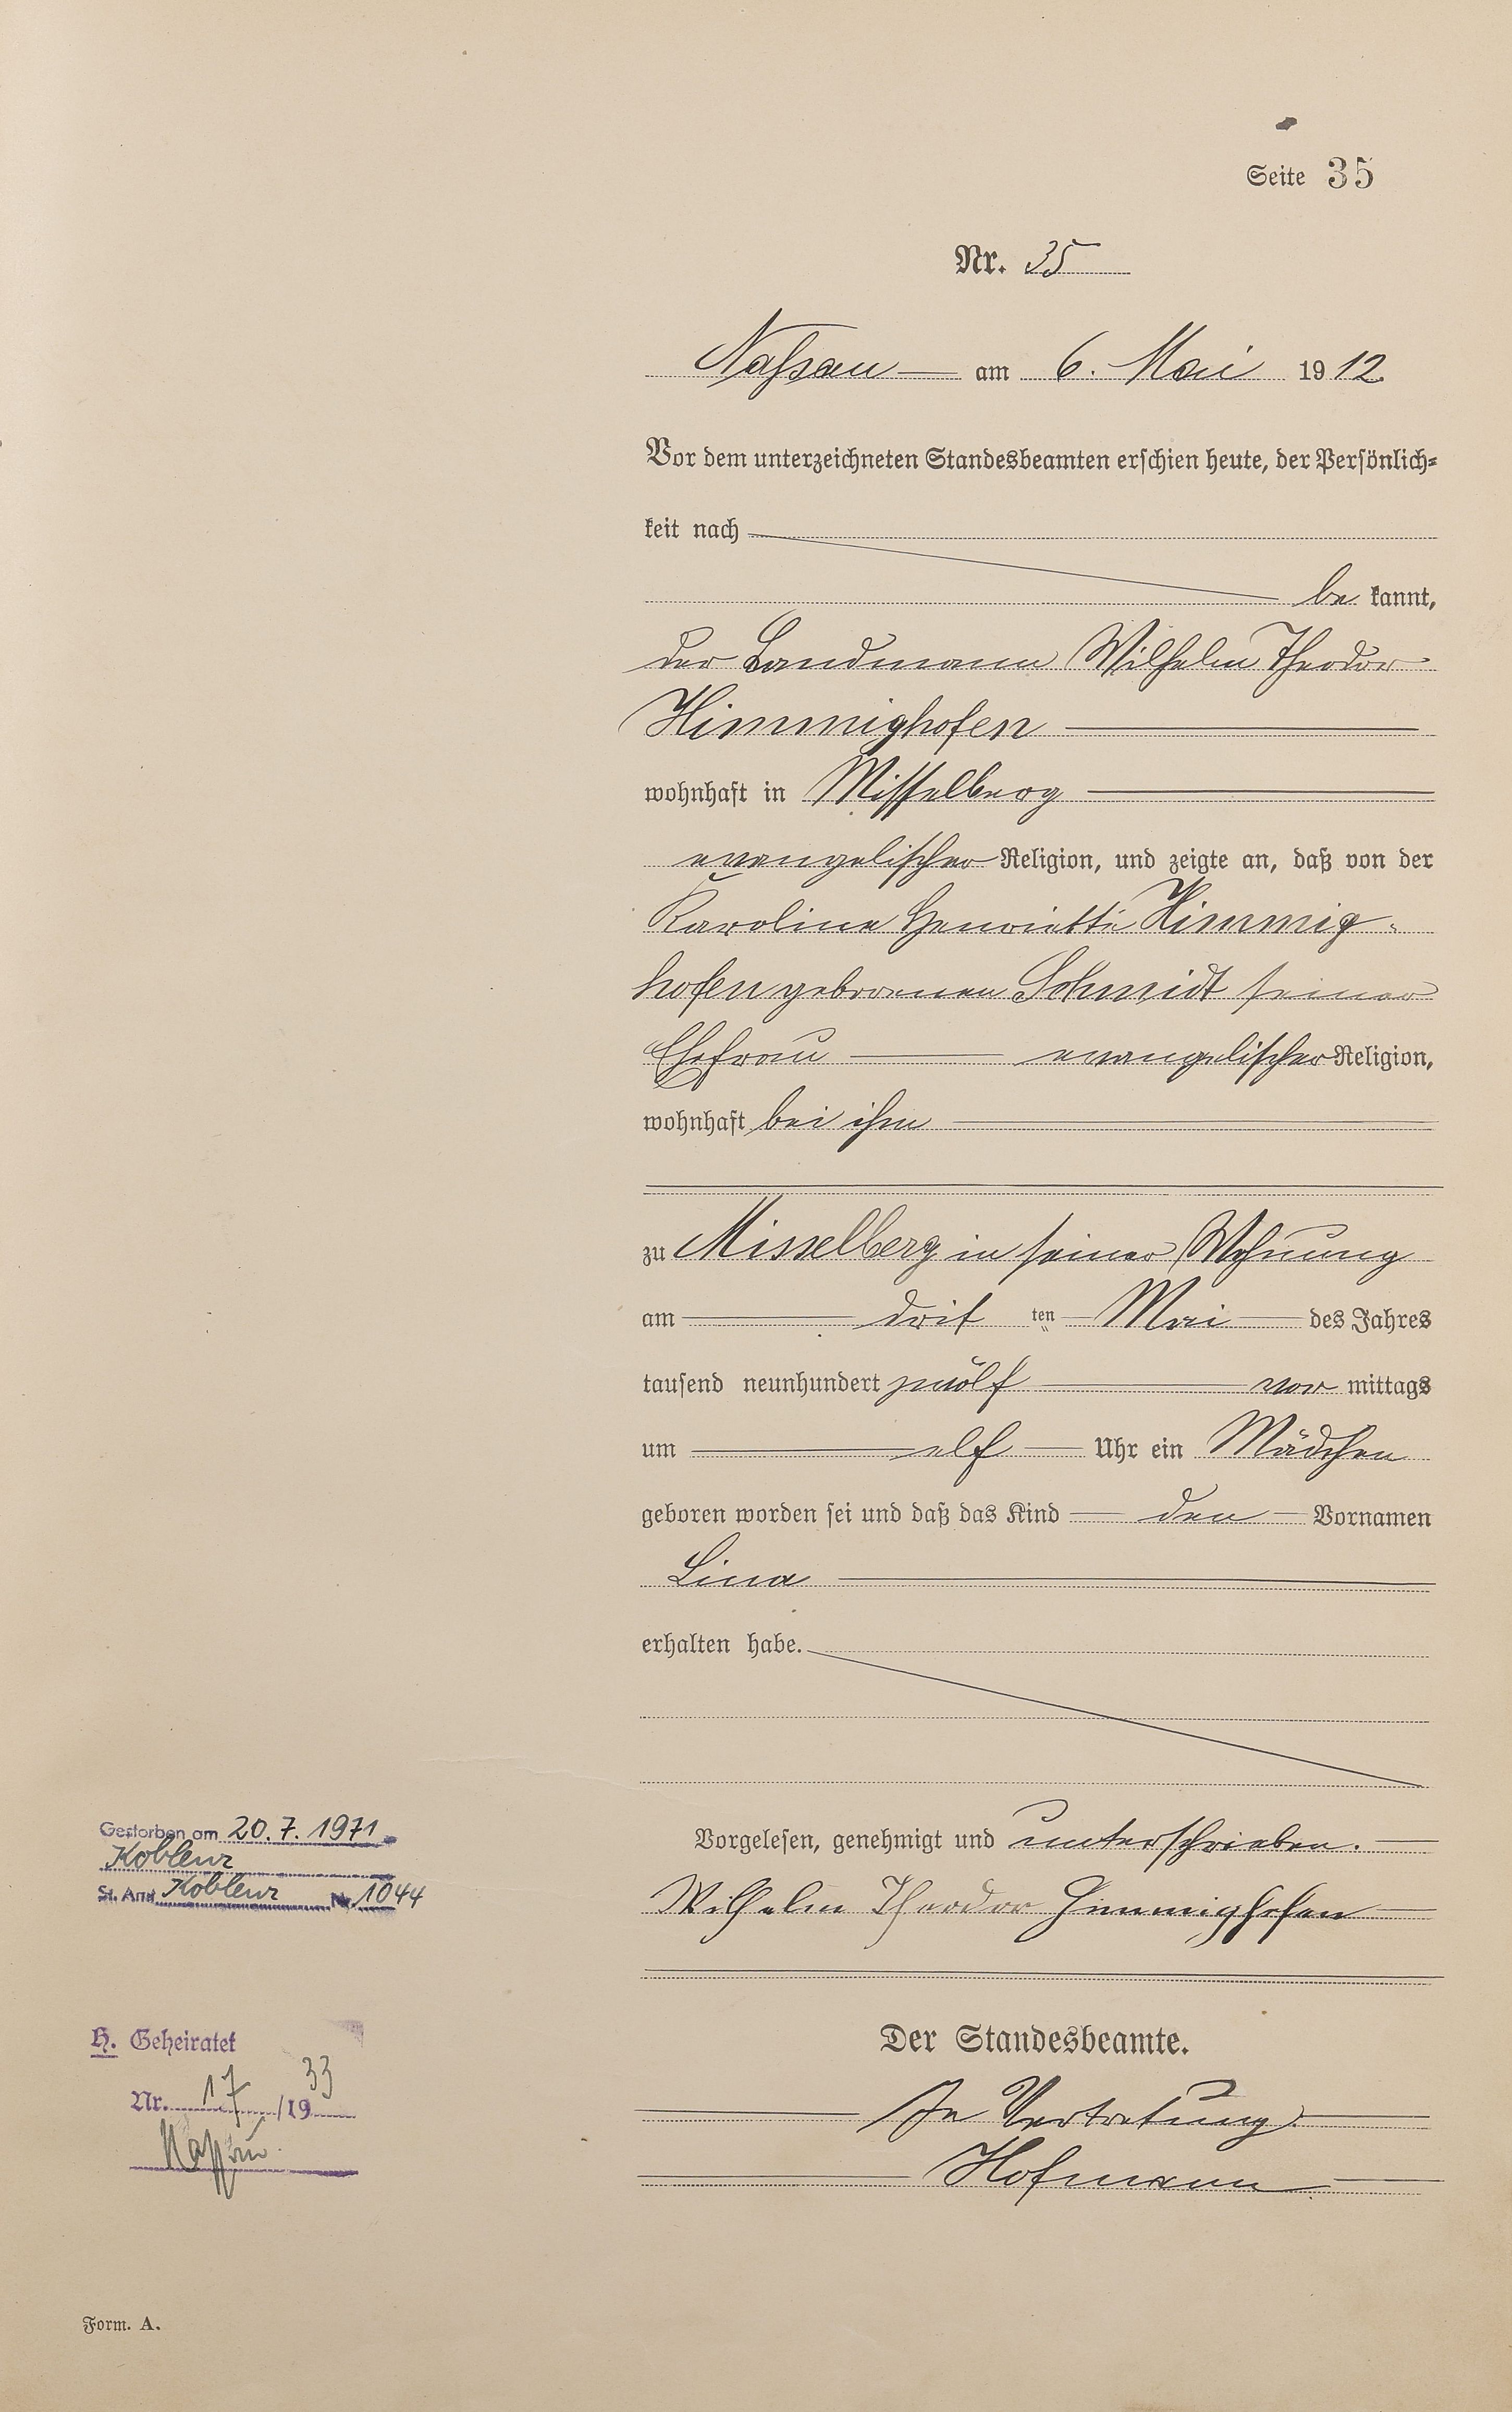 Seite 35
Nr. 35
Nassau am 6. Mai 1912
Vor dem unterzeichneten Standesbeamten erschien heute, der Persönlich-
keit nach
be kannt,
der Landmann Wilhelm Theodor
Himmighofen
wohnhaft in Misselberg
evangelischer Religion, und zeigte an, daß von der
Karoline Henriette Himmig-
hofen geborenen Schmidt seiner
Ehefrau evangelischer Religion,
wohnhaft bei ihm
zu Misselberg in seiner Wohnung
am drit ten Mai des Jahres
tausend neunhundert zwölf vor mittags
um elf Uhr ein Mädchen
geboren worden sei und daß das Kind den Vornamen
Lina
erhalten habe.
Vorgelesen, genehmigt und unterschrieben.
Wilhelm Theodor Himmighofen
Der Standesbeamte.
In Vertretung
Hofmann
Gestorben am 20.7.1971
Koblenz
St. Amt Koblenz Nr. 1044
H. Geheiratet
Nr. 17 /1933
Nassau
Form. A.